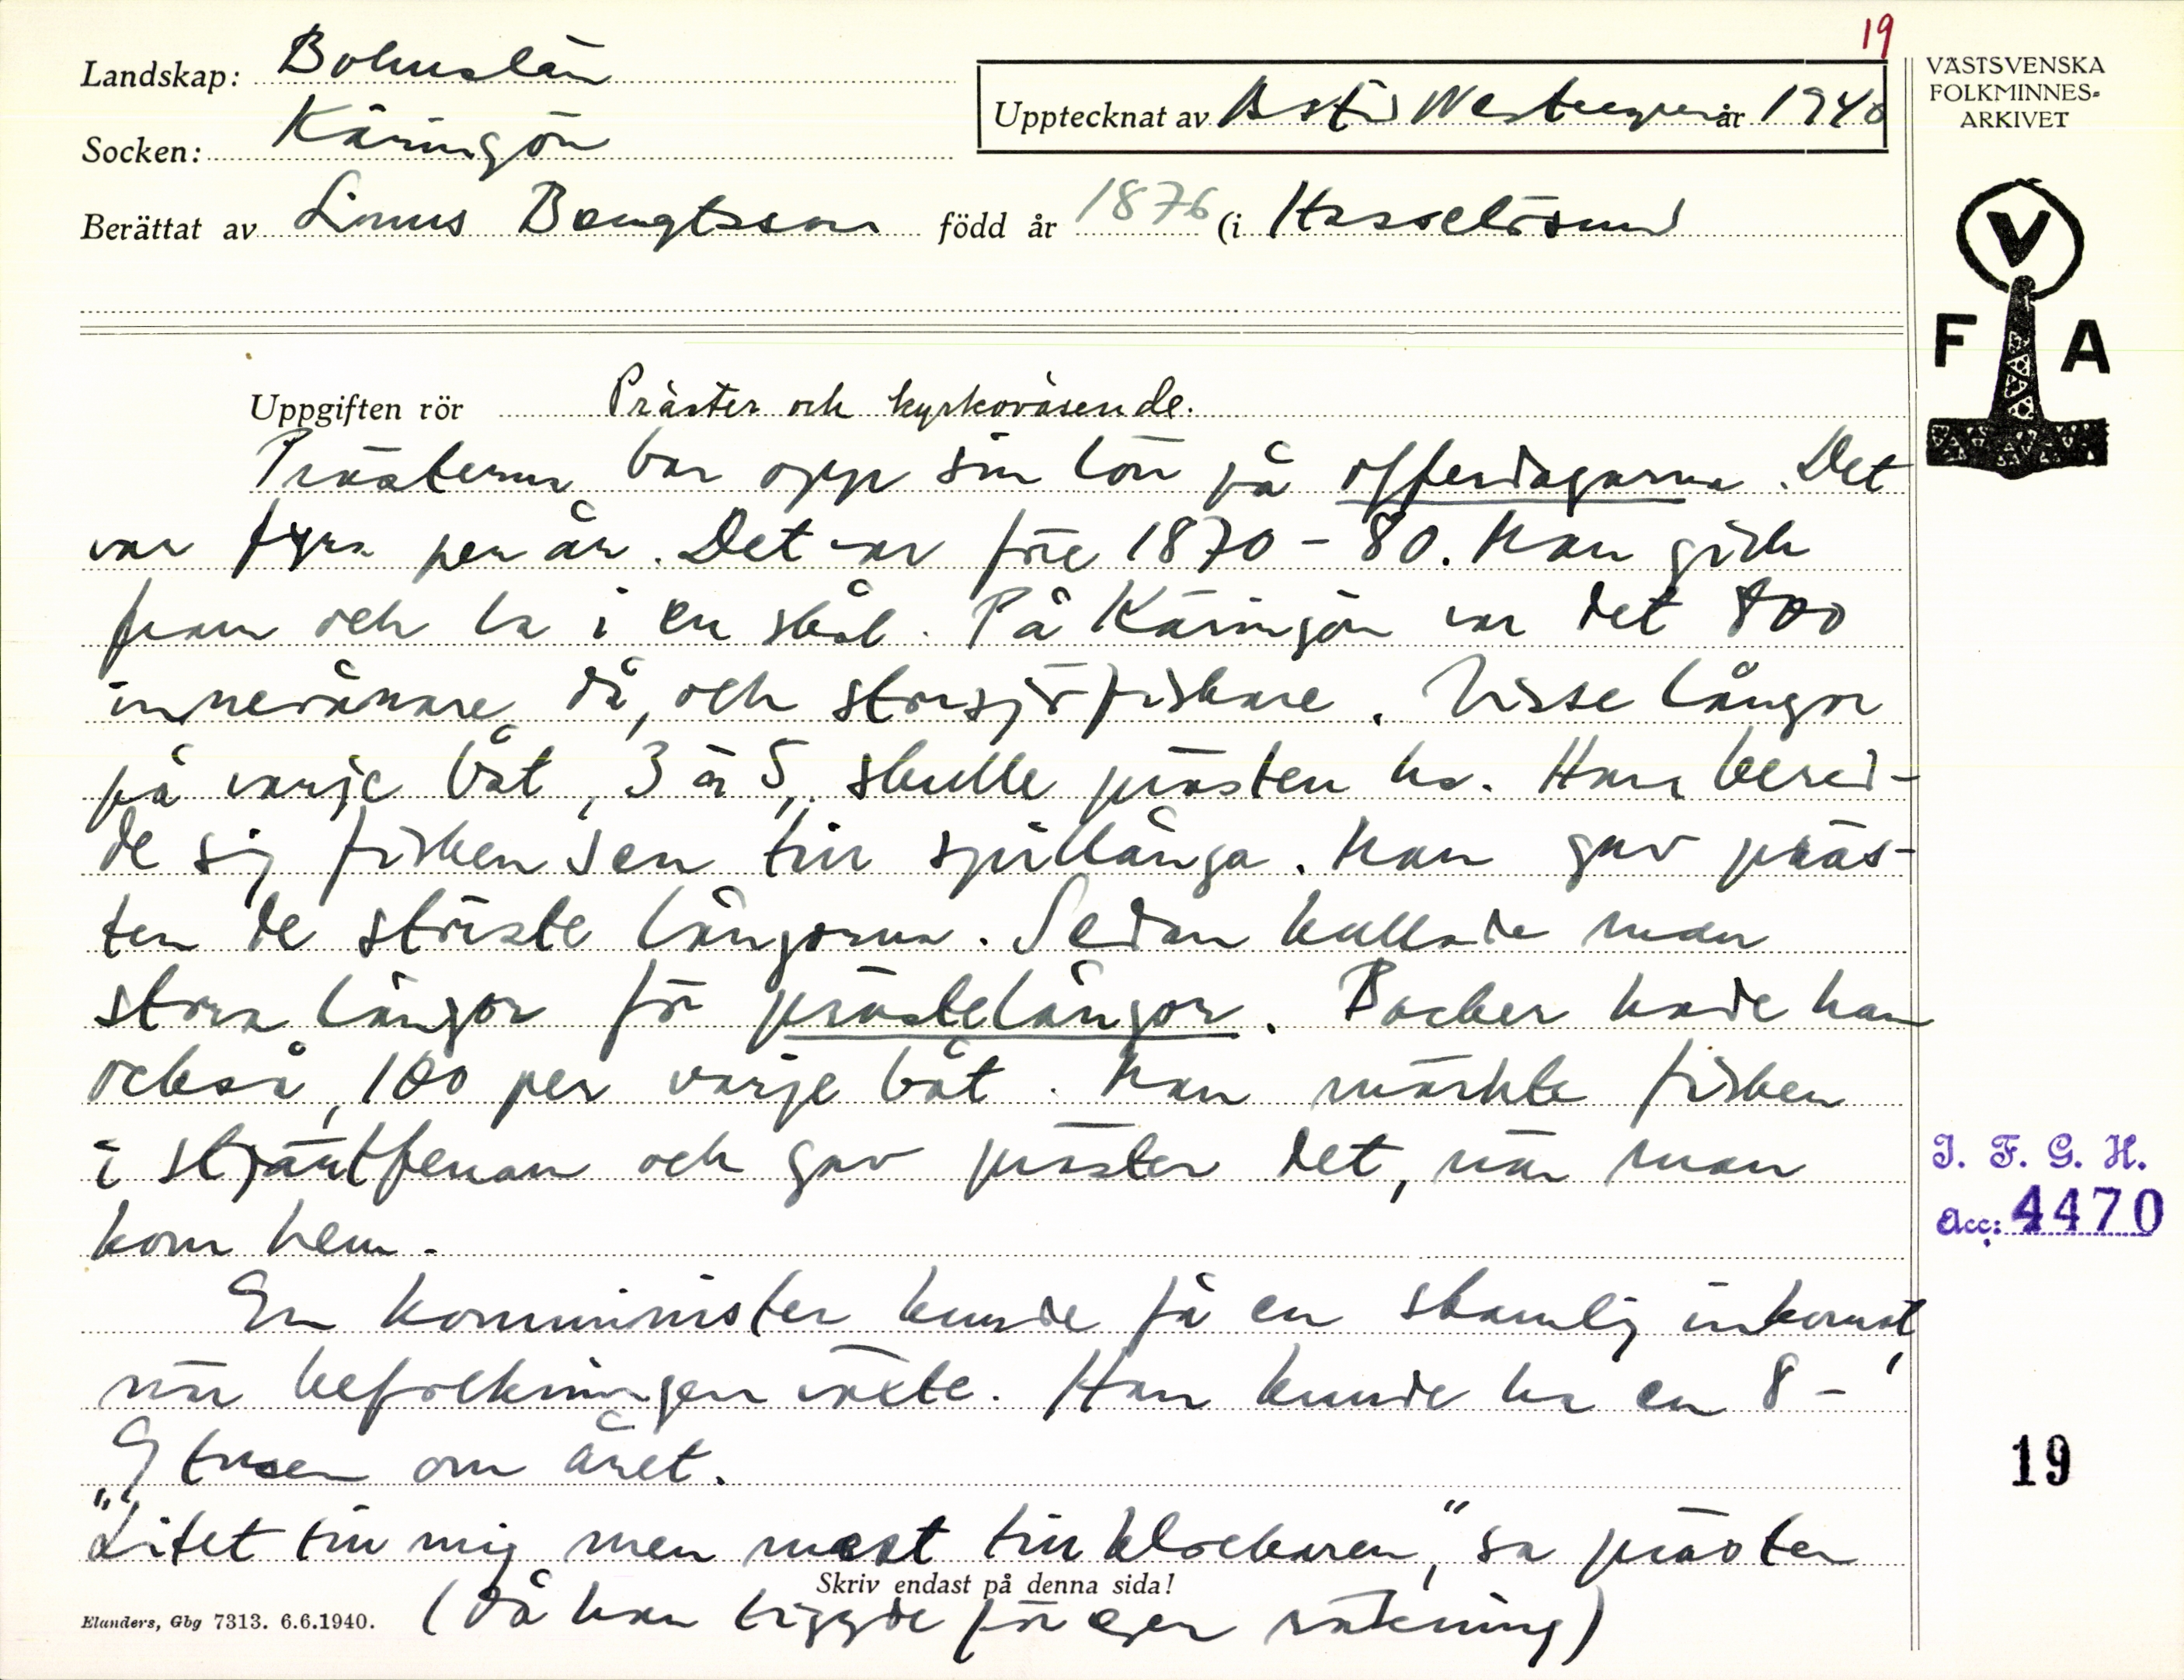 19
Landskap: Bohuslän
Socken: Käringön
Upptecknat av Astrid Westergren år 1940
Berättat av Linus Bengtsson född år 1876 (i Hasselösund
VÄSTSVENSKA
FOLKMINNES-
ARKIVET
V
F A
Uppgiften rör Präster och kyrkoväsende.
Prästerna bar opp sin lön på offerdagarna. Det
var fyra per år. Det var före 1870-80. Man gick
fram och la i en skål. På Käringön var det 800
innevånare då, och storsjöfiskare. Visse långor
på varje båt, 3 à 5, skulle prästen ha. Han bered-
de sig fisken sen till spillånga. Man gav präs-
ten de största långorna. Sedan kallade man
stora långor för prästelångor. Backer hade han
också, 100 per varje båt. Man märkte fisken
i stjärtfenan och gav prästen det, när man
kom hem.
En komminister kunde få en skamlig inkomst,
när befolkningen växte. Han kunde ha en 8-
9 tusen om året.
"Litet till mig men mest till klockaren," sa prästen
Skriv endast på denna sida!
(då han tiggde för egen räkning)
Elanders, Gbg 7313. 6.6.1940.
I. F. G. H.
Acc: 4470
19